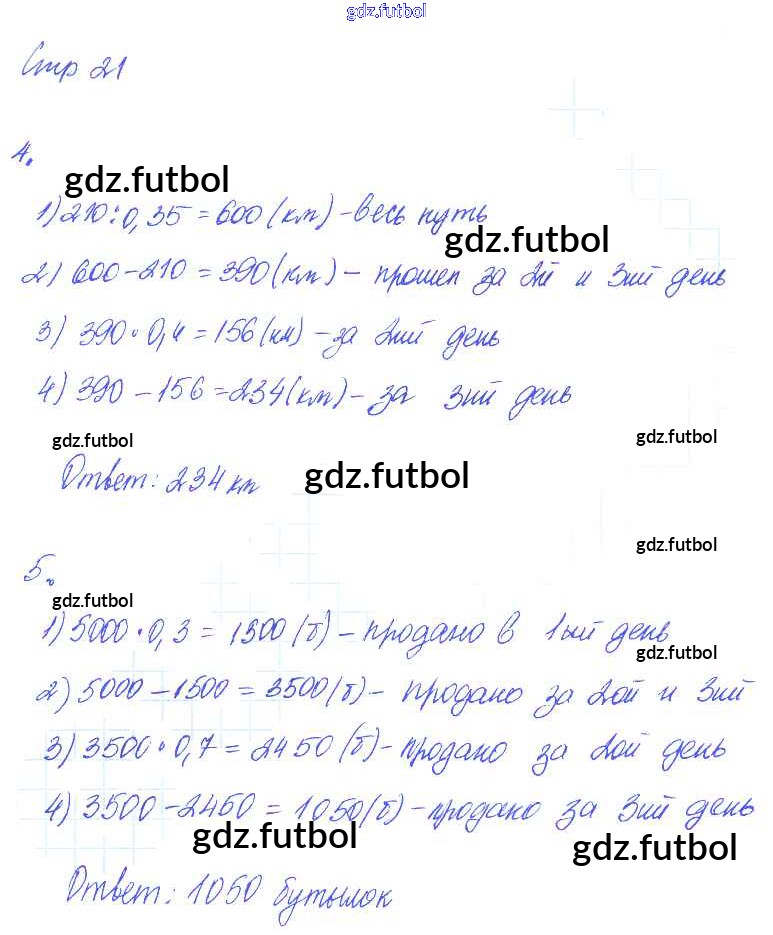 gdz.futbol
Стр 21
4.
gdz.futbol
1) 210 : 0,35 = 600 (км) - весь путь
gdz.futbol
2) 600 - 210 = 390 (км) - прошел за 2й и 3ий день
3) 390 · 0,4 = 156 (км) - за 2ий день
4) 390 - 156 = 234 (км) - за 3ий день
gdz.futbol gdz.futbol
Ответ: 234 км gdz.futbol
gdz.futbol
5.
gdz.futbol
1) 5000 · 0,3 = 1500 (б) - продано в 1ый день
gdz.futbol
2) 5000 - 1500 = 3500 (б) - продано за 2ой и 3ий
3) 3500 · 0,7 = 2450 (б) - продано за 2ой день
4) 3500 - 2450 = 1050 (б) - продано за 3ий день
gdz.futbol gdz.futbol
Ответ: 1050 бутылок